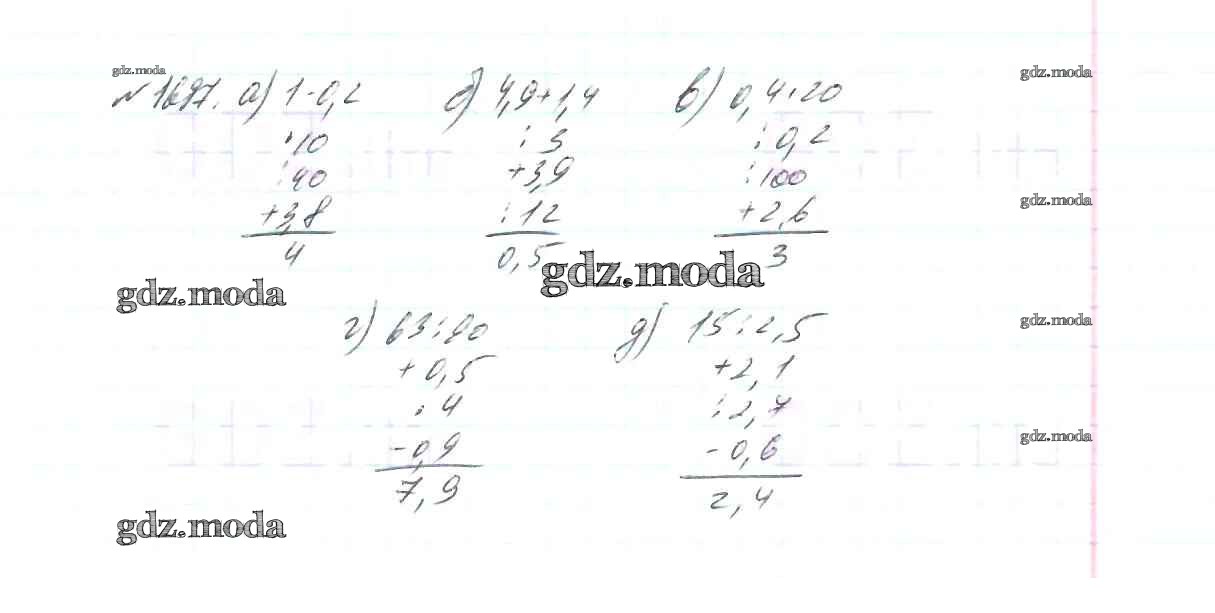 gdz.moda
№ 1697. а) 1-0,2 б) 4,9+1,4 в) 0,4·20 gdz.moda
·10 :3 :0,2
:40 +3,9 :100
+3,8 :12 +2,6 gdz.moda
4 0,5 3
gdz.moda gdz.moda
г) 63:90 д) 15:2,5 gdz.moda
+0,5 +2,1
:4 :2,7
-0,9 -0,6 gdz.moda
7,9 2,4
gdz.moda